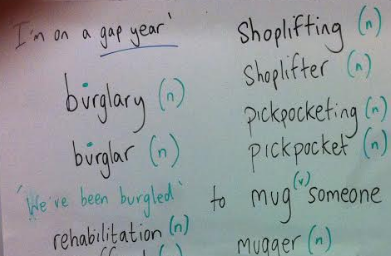 'I'm on a gap year'
burglary (n)
burglar (n)
'We've been burgled'
rehabilitation (n)
Shoplifting (n)
Shoplifter (n)
pickpocketing (n)
pickpocket (n)
to mug (v) someone
mugger (n)